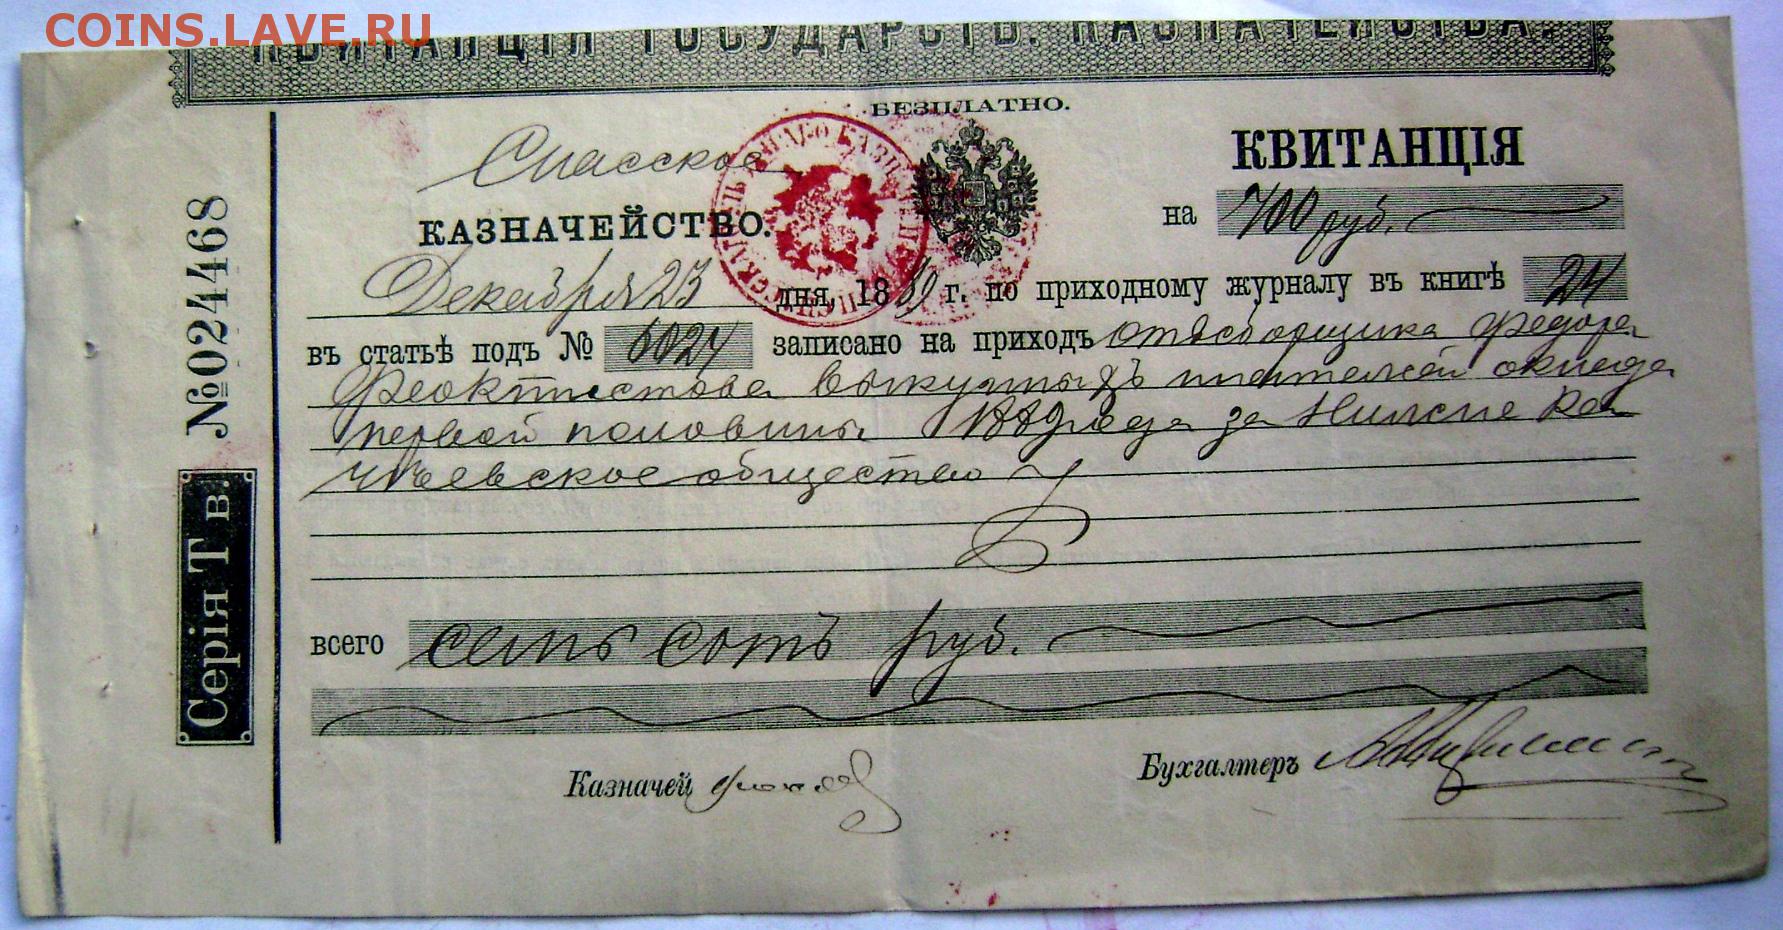 COINS.LAVE.RU
КВИТАНЦІЯ ГОСУДАРСТВ. КАЗНАЧЕЙСТВА.
БЕЗПЛАТНО.
Спасское
КАЗНАЧЕЙСТВО.
КВИТАНЦІЯ
на 700 руб.
Декабря 23 дня, 1889 г. по приходному журналу въ книгѣ 24
въ статьѣ подъ № 6024 записано на приходъ отъ сборщика Федора
Феоктистова выкупныхъ платежей оклада
первой половины 1889 года за
общество
всего семь сотъ руб.
Казначей
Бухгалтеръ
№024468
Серія Т в.